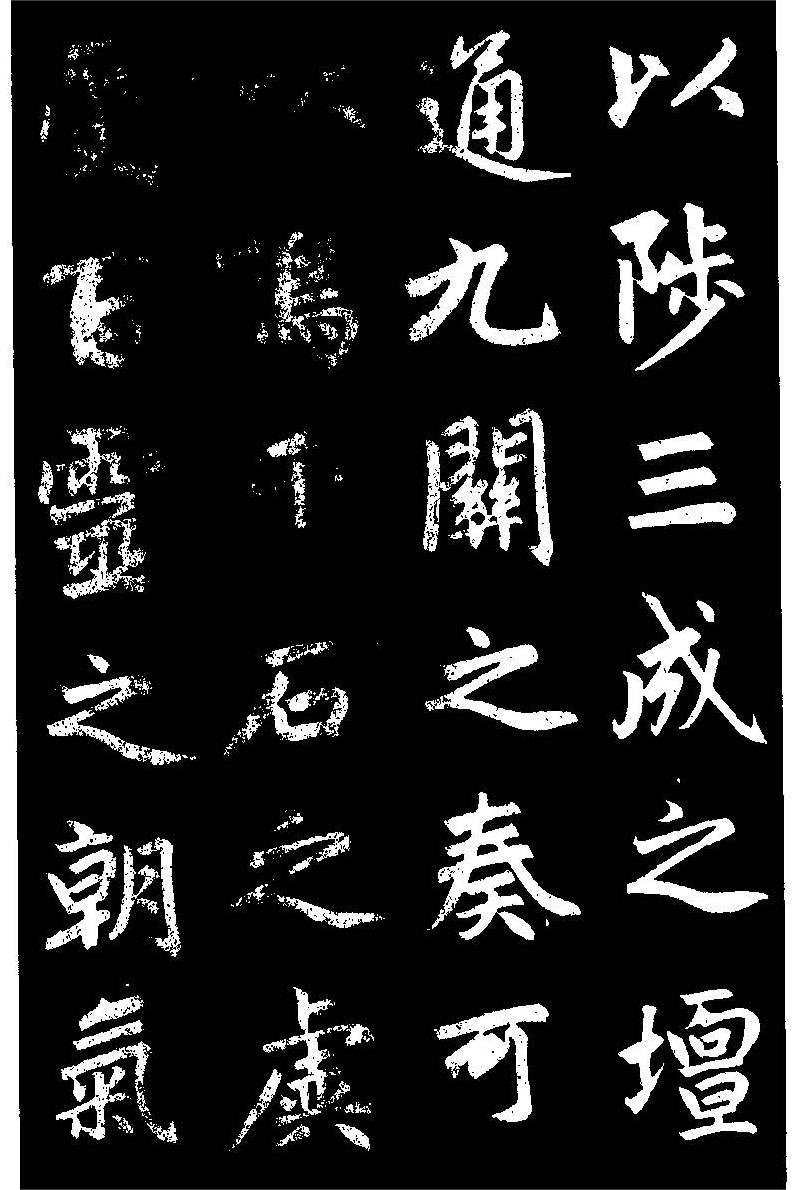 以陟三成之壇
通九關之奏可
以鳴千石之虡
百靈之朝氣